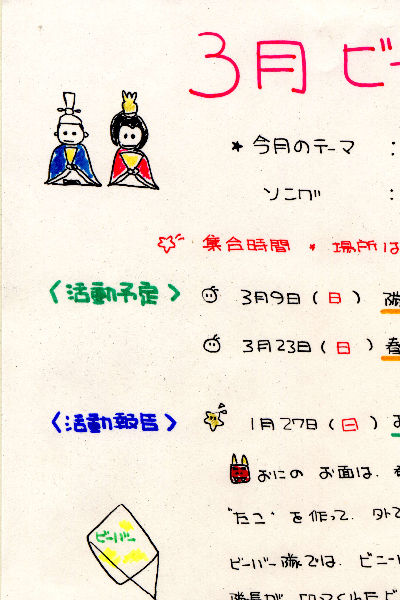 3月 ビー
★ 今月のテーマ :
ソング :
☆ 集合時間 * 場所は
〈活動予定〉 3月9日(日) 隊
3月23日(日) 春
〈活動報告〉 1月27日(日)
おにの お面は、
"たこ" を作って、外で
ビーバー
ビーバー隊では、ビニー
隊長が